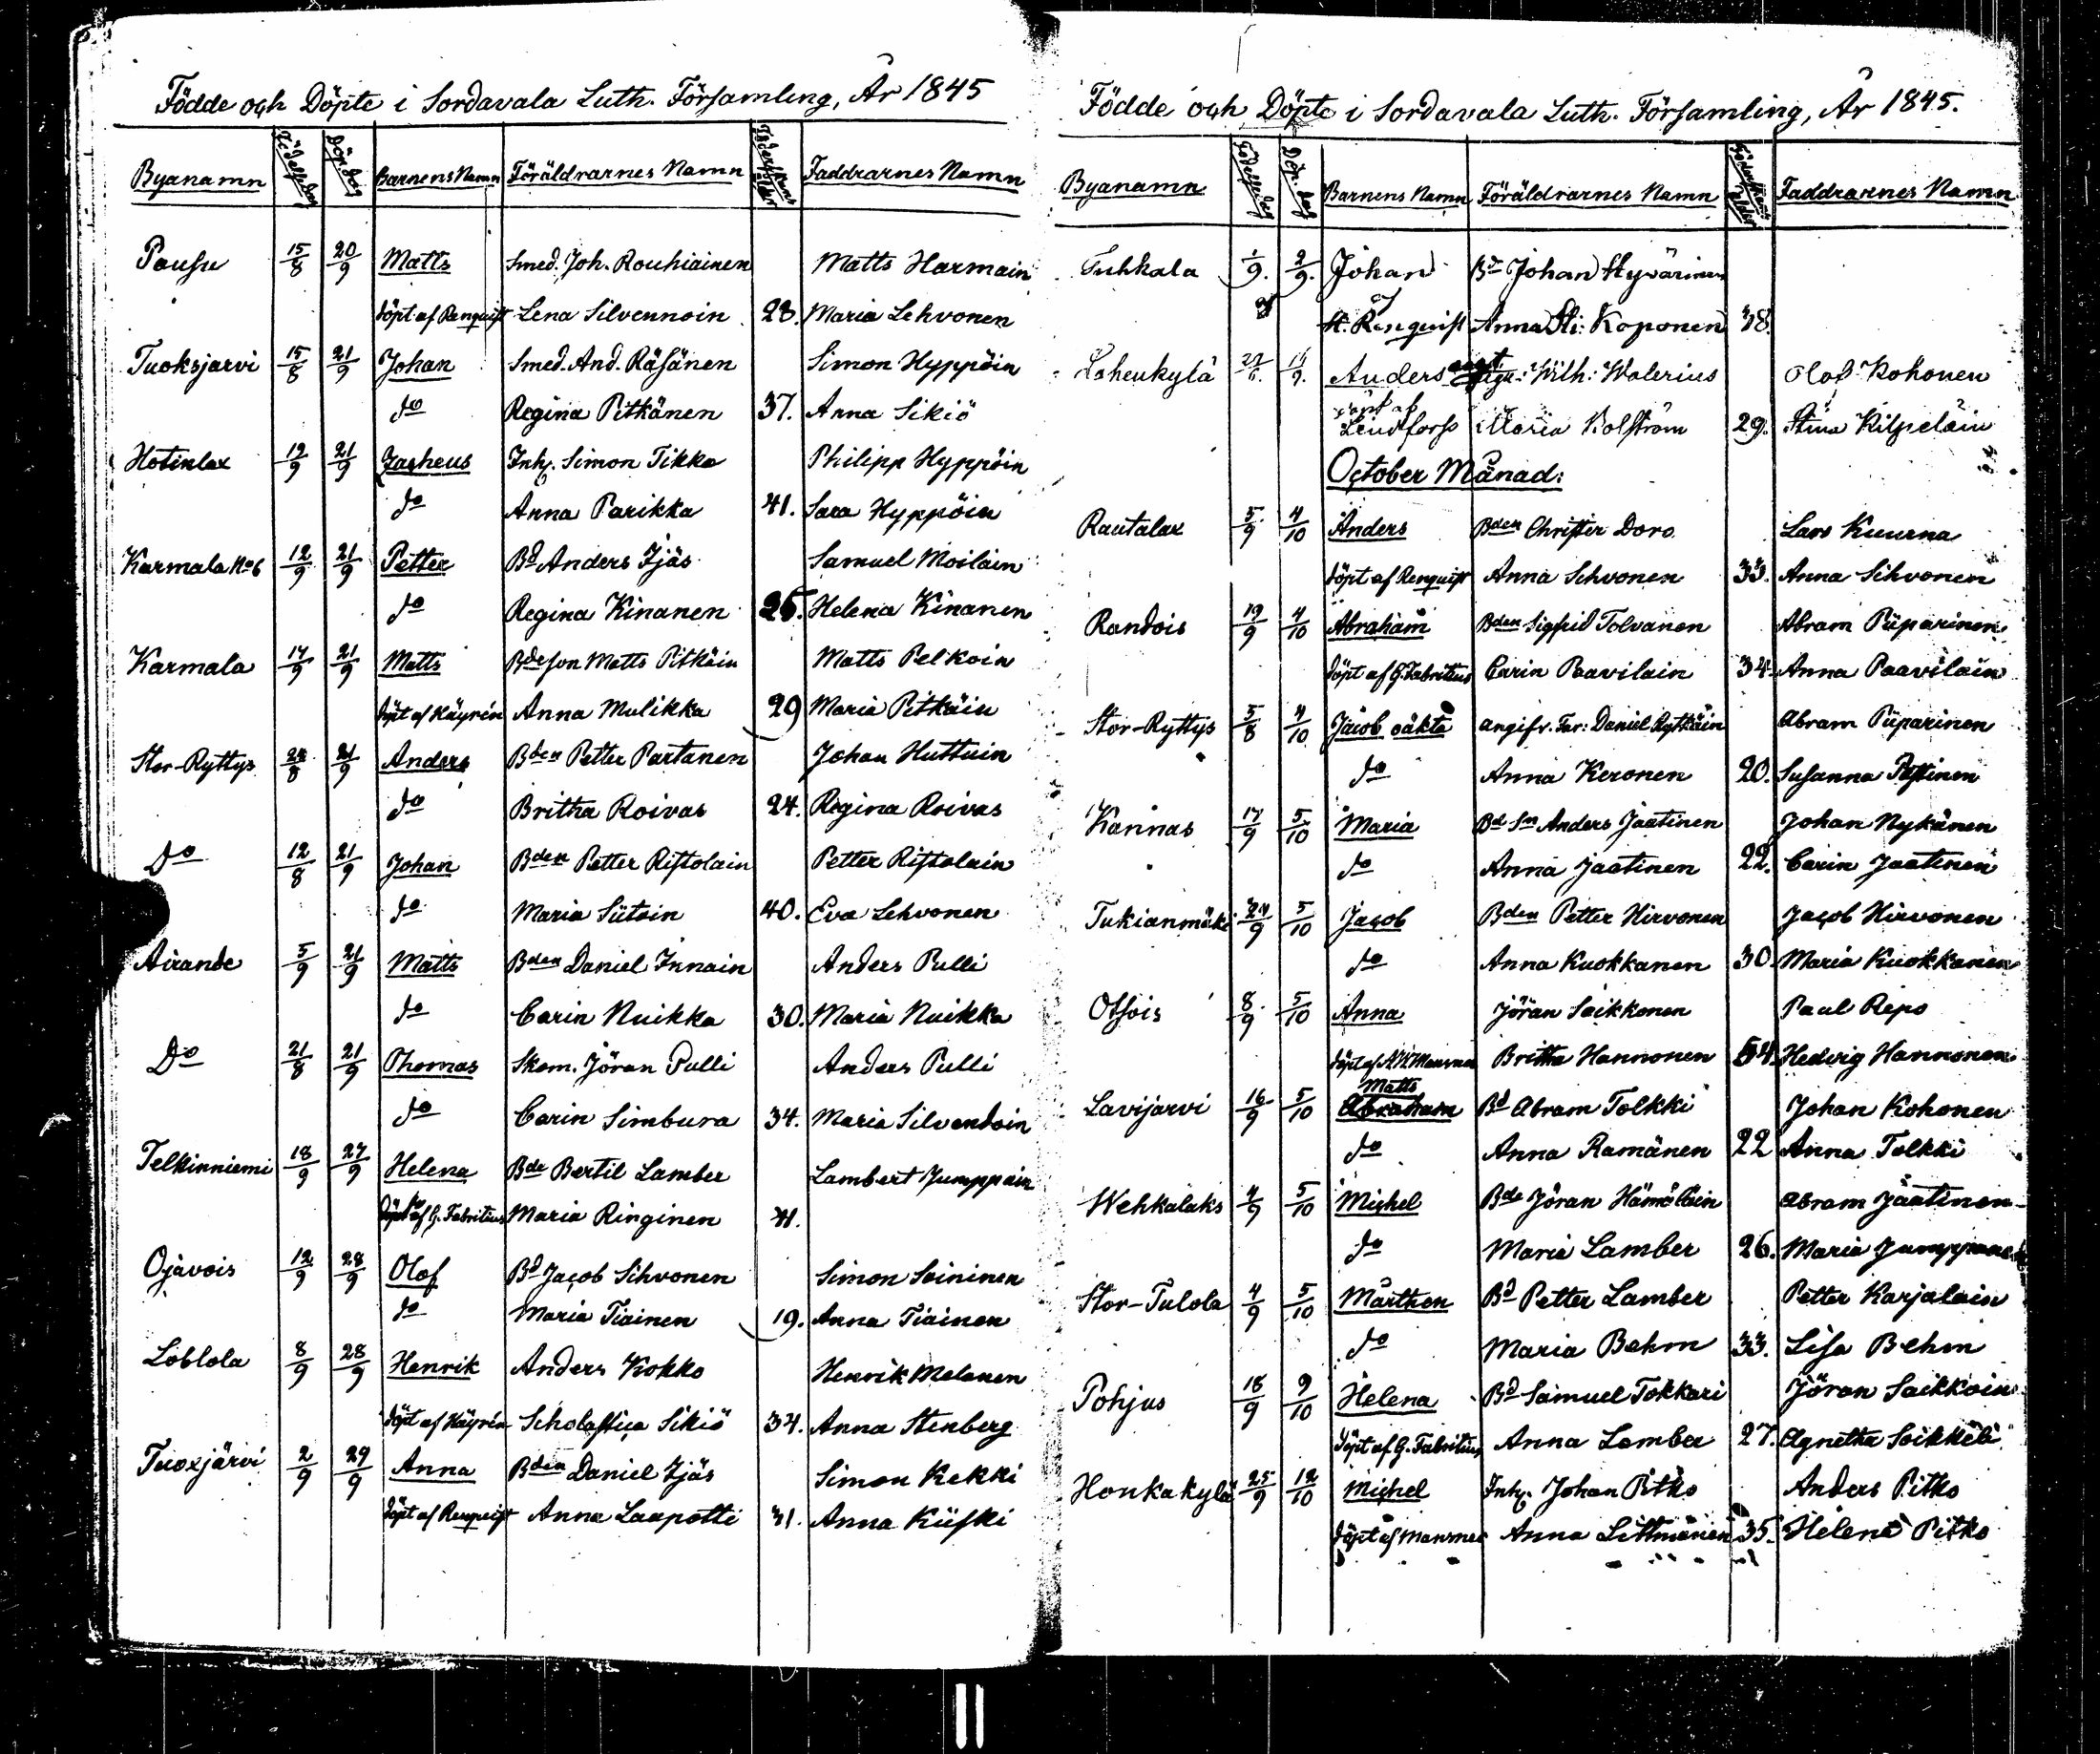 Födde och Döpte i Sordavala Luth. Församling, År 1845
Byanamn Födelsedag Döp. dag Barnens Namn Föräldrarnes Namn Föderskans ålder Faddrarnes Namn
Pausu 15/8 20/9 Matts Smed. Joh. Rouhiainen Matts Harmain
döpt af Renquist Lena Silvennoin 28. Maria Lehvonen
Tuoksjarvi 15/8 21/9 Johan Smed. And. Räsänen Simon Hyppöin
do Regina Pitkänen 37. Anna Sikiö
Hotinlax 19/9 21/9 Zacheus Inh. Simon Tikka Philipp Hyppöin
do Anna Parikka 41. Sara Hyppöin
Karmala No 6 12/9 21/9 Petter Bd Anders Ijäs Samuel Moilain
do Regina Kinanen 25. Helena Kinanen
Karmala 17/9 21/9 Matts Bdeson Matts Pitkäin Matts Pelkoin
döpt af Häyrén Anna Mulikka 29 Maria Pitkäin
Stor-Ryttys 24/8 21/9 Anders Bden Petter Partanen Johan Huttuin
do Britha Roivas 24. Regina Roivas
Do 12/8 21/9 Johan Bden Petter Ristolain Petter Ristolain
do Maria Siitoin 40. Eva Lehvonen
Airande 5/9 21/9 Matts Bden Daniel Innain Anders Pulli
do Carin Nuikka 30. Maria Nuikka
Do 21/8 21/9 Thomas Skom. Jöran Pulli Anders Pulli
do Carin Simbura 34. Maria Silvendoin
Telkinniemi 18/9 27/9 Helena Bde Bertil Lamber Lambert Jumppain
döpt af G. Fabritius Maria Ringinen 41.
Ojavois 12/9 28/9 Olof Bd Jacob Sihvonen Simon Soininen
do Maria Tiainen 19. Anna Tiainen
Loblola 8/9 28/9 Henrik Anders Kokko Henrik Melanen
döpt af Häyrén Scholastica Sikiö 34. Anna Stenberg
Tuoxjärvi 2/9 29/9 Anna Bden Daniel Ijäs Simon Kekki
döpt af Renquist Anna Laapotti 31. Anna Kiiski
Födde och Döpte i Sordavala Luth. Församling, År 1845.
Byanamn Födelsedag Döp. dag Barnens Namn Föräldrarnes Namn Föderskans ålder Faddrarnes Namn
Tuhkala 1/9. 2/9. Johan Bd Johan Hyvärinen
af H. Renquist Anna Sti: Koponen 38.
Lahenkylä Anders Wilh: Walerius Olof Kohonen
döpt af Lindforss Maria Kolström 29. Stina Kilpeläin
October Månad:
Rautalax 5/9 4/10 Anders Bden Christer Doro Lars Kuurna
döpt af Renquist Anna Sihvonen 33. Anna Sihvonen
Randois 19/9 4/10 Abraham Bden Sigfrid Tolvanen Abram Piiparinen
döpt af G. Fabritius Carin Paavilain 34. Anna Paavilain
Stor-Ryttys 5/8 4/10 Jacob oäkta angifv. Far: Daniel Ryttkäin Abram Piiparinen
do Anna Keronen 20. Susanna
Kannas 17/9 5/10 Maria Bd Sn Anders Jaatinen Johan Nykänen
do Anna Jaatinen 22. Carin Jaatinen
Tukianmäki 24/9 5/10 Jacob Bden Petter Hirvonen Jacob Hirvonen
do Anna Kuokkanen 30. Maria Kuokkanen
Otsois 8/9 5/10 Anna Jöran Soikkonen Paul Repo
döpt af Britha Hannonen 34. Hedvig Hannonen
Lavijarvi 16/9 5/10 Matts Abraham Bd Abram Tolkki Johan Kohonen
do Anna Ramänen 22 Anna Tolkki
Wehkalaks 4/9 5/10 Michel Bde Jöran Hämäläin Abram Jäätinen
do Maria Lamber 26. Maria
Stor-Tulola 4/9 5/10 Mårthen Bd Petter Lamber Petter Karjalain
do Maria Behm 33. Lisa Behm
Pohjus 18/9 9/10 Helena Bd Samuel Tokkari Jöran Saikkoin
döpt af G. Fabritius Anna Lamber 27. Agnetha Soikkeli
Honkakylä 25/9 12/10 Michel Inh. Johan Pitko Anders Pitko
döpt af Manner Anna Littmänen 35. Helena Pitko